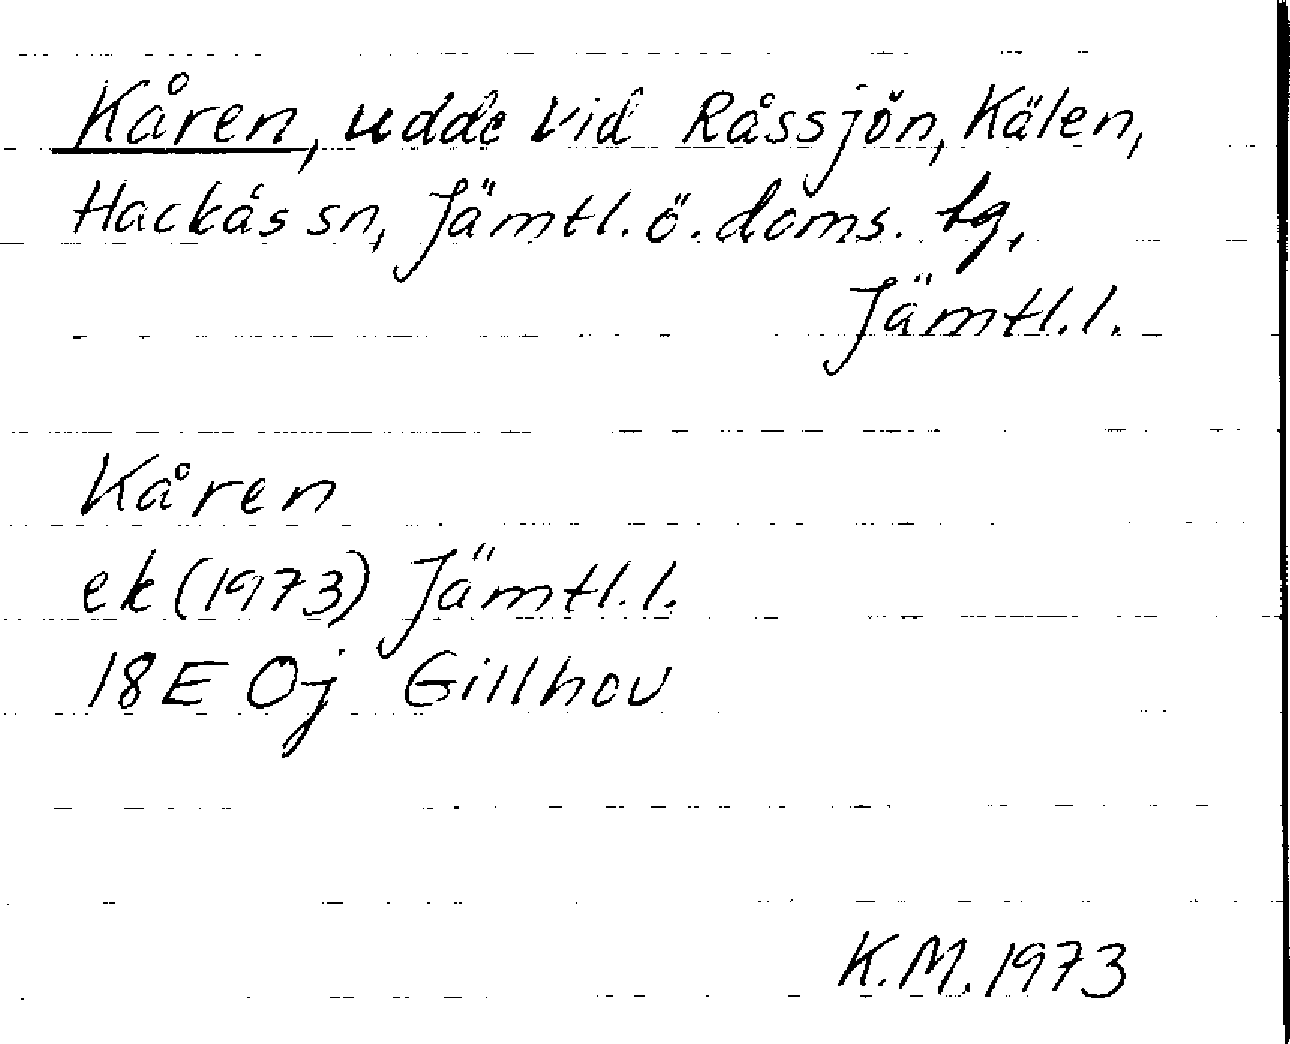 Kåren, udde vid Råssjön, Kälen,
Hackås sn, Jämtl. ö. doms. tg,
Jämtl. l.
Kåren
ek (1973) Jämtl. l.
18E Oj Gillhov
K.M. 1973